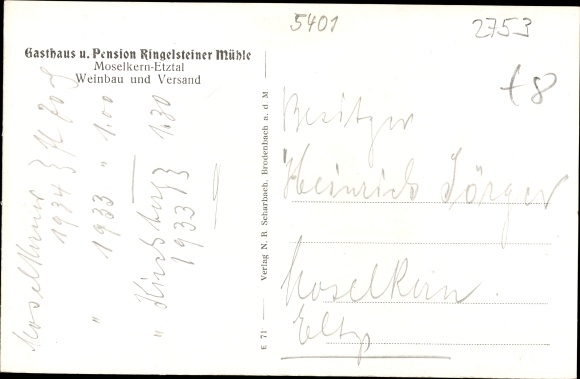 5401
2753
Gasthaus u. Pension Ringelsteiner Mühle
Moselkern-Etztal
Weinbau und Versand
Moselkerner
1934
70
" 1933 " 1.00
" Kirchberg
1933 1.30
Verlag N. R. Scharbach, Brodenbach a. d. M
E 71
+8
Besitzer
Heinrich Jörger
Moselkern.
Eltz